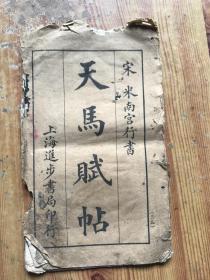 宋米南宮行書
天馬賦帖
上海進步書局印行